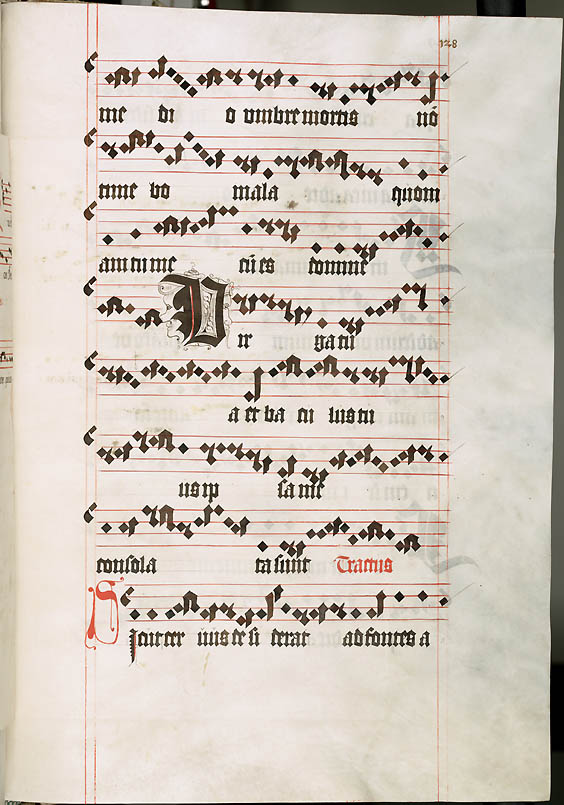 128
me di o vmbre mortis nō
time bo mala quoni
am tu me cū es domine
Uir ga tu
a et ba cu lus tu
us ip sa me
consola ta sunt Tractus
Sicut cer uus de si derat ad fontes a